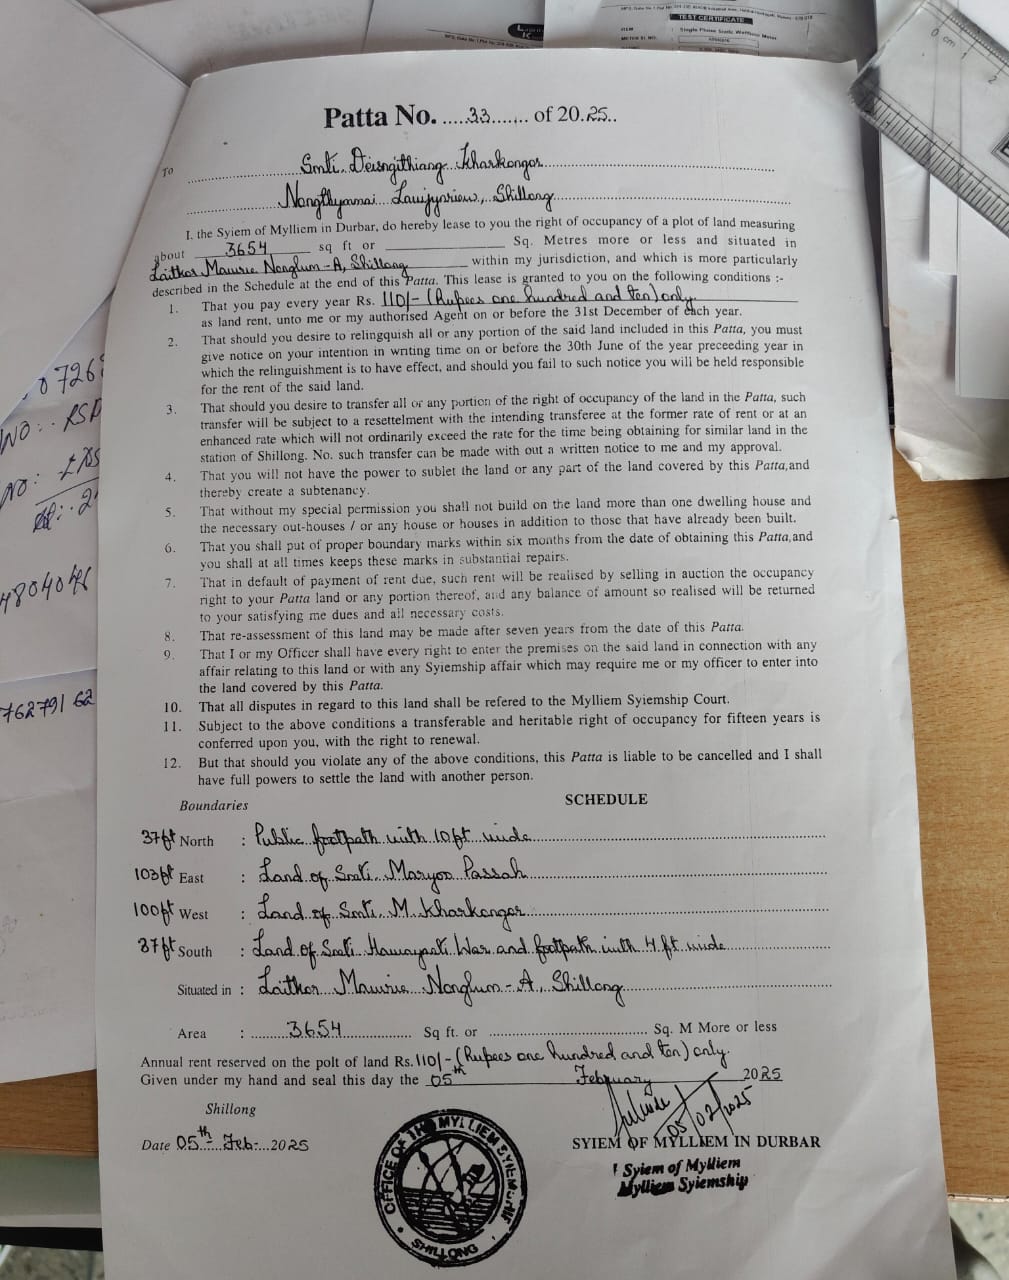 TEST CERTIFICATE
Single Phase Static Watthour Meter
0 cm 1 2
Patta No. .....33....... of 20.25..
To Smti. Deisngithiang Kharkongor
Nongthymmai Lawjynriew, Shillong
I. the Syiem of Mylliem in Durbar, do hereby lease to you the right of occupancy of a plot of land measuring
about 3654 sq ft or ________ Sq. Metres more or less and situated in
Laitkor Mawrie Nonglum-A, Shillong within my jurisdiction, and which is more particularly
described in the Schedule at the end of this Patta. This lease is granted to you on the following conditions :-
1. That you pay every year Rs. 110/- (Rupees one hundred and ten) only
as land rent, unto me or my authorised Agent on or before the 31st December of each year.
2. That should you desire to relinquish all or any portion of the said land included in this Patta, you must
give notice on your intention in writing time on or before the 30th June of the year preceeding year in
which the relinguishment is to have effect, and should you fail to such notice you will be held responsible
for the rent of the said land.
3. That should you desire to transfer all or any portion of the right of occupancy of the land in the Patta, such
transfer will be subject to a resettelment with the intending transferee at the former rate of rent or at an
enhanced rate which will not ordinarily exceed the rate for the time being obtaining for similar land in the
station of Shillong. No. such transfer can be made with out a written notice to me and my approval.
4. That you will not have the power to sublet the land or any part of the land covered by this Patta,and
thereby create a subtenancy.
5. That without my special permission you shall not build on the land more than one dwelling house and
the necessary out-houses / or any house or houses in addition to those that have already been built.
6. That you shall put of proper boundary marks within six months from the date of obtaining this Patta,and
you shall at all times keeps these marks in substantial repairs.
7. That in default of payment of rent due, such rent will be realised by selling in auction the occupancy
right to your Patta land or any portion thereof, and any balance of amount so realised will be returned
to your satisfying me dues and all necessary costs.
8. That re-assessment of this land may be made after seven years from the date of this Patta.
9. That I or my Officer shall have every right to enter the premises on the said land in connection with any
affair relating to this land or with any Syiemship affair which may require me or my officer to enter into
the land covered by this Patta.
10. That all disputes in regard to this land shall be refered to the Mylliem Syiemship Court.
11. Subject to the above conditions a transferable and heritable right of occupancy for fifteen years is
conferred upon you, with the right to renewal.
12. But that should you violate any of the above conditions, this Patta is liable to be cancelled and I shall
have full powers to settle the land with another person.
Boundaries SCHEDULE
37ft North : Public footpath with 10ft wide
103ft East : Land of Smti. Maryon Passah
100ft West : Land of Smti. M. Kharkongor
37ft South : Land of Smti. War and footpath with 4 ft wide
Situated in : Laitkor Mawrie Nonglum-A, Shillong
Area : 3654 Sq ft. or ........ Sq. M More or less
Annual rent reserved on the polt of land Rs. 110/- (Rupees one hundred and ten) only.
Given under my hand and seal this day the 05th February 2025
Shillong
05/02/2025
Date 05th Feb 2025
SYIEM OF MYLLIEM IN DURBAR
Syiem of Mylliem
Mylliem Syiemship
OFFICE OF THE MYLLIEM SYIEMSHIP
SHILLONG